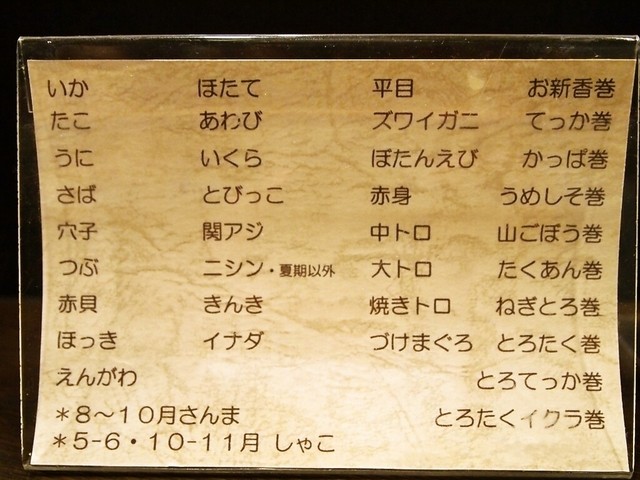 いか ほたて 平目 お新香巻
たこ あわび ズワイガニ てっか巻
うに いくら ぼたんえび かっぱ巻
さば とびっこ 赤身 うめしそ巻
穴子 関アジ 中トロ 山ごぼう巻
つぶ ニシン・夏期以外 大トロ たくあん巻
赤貝 きんき 焼きトロ ねぎとろ巻
ほっき イナダ づけまぐろ とろたく巻
えんがわ とろてっか巻
＊8〜10月さんま とろたくイクラ巻
＊5-6・10-11月 しゃこ